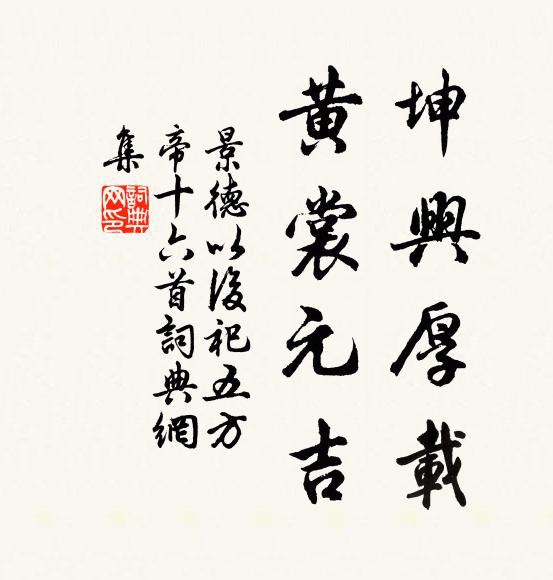 坤興厚載
黃裳元吉
景德以後祀五方
帝十六首詞典網
集
詞典
网印